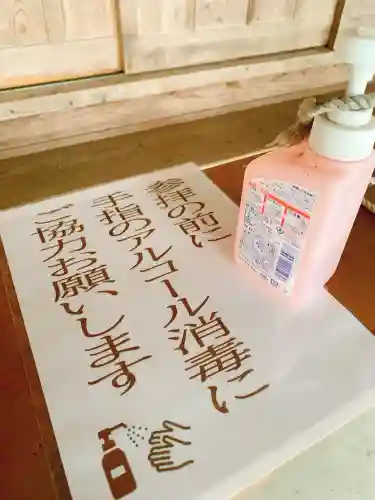 参拝の前に
手指のアルコール消毒に
ご協力お願いします